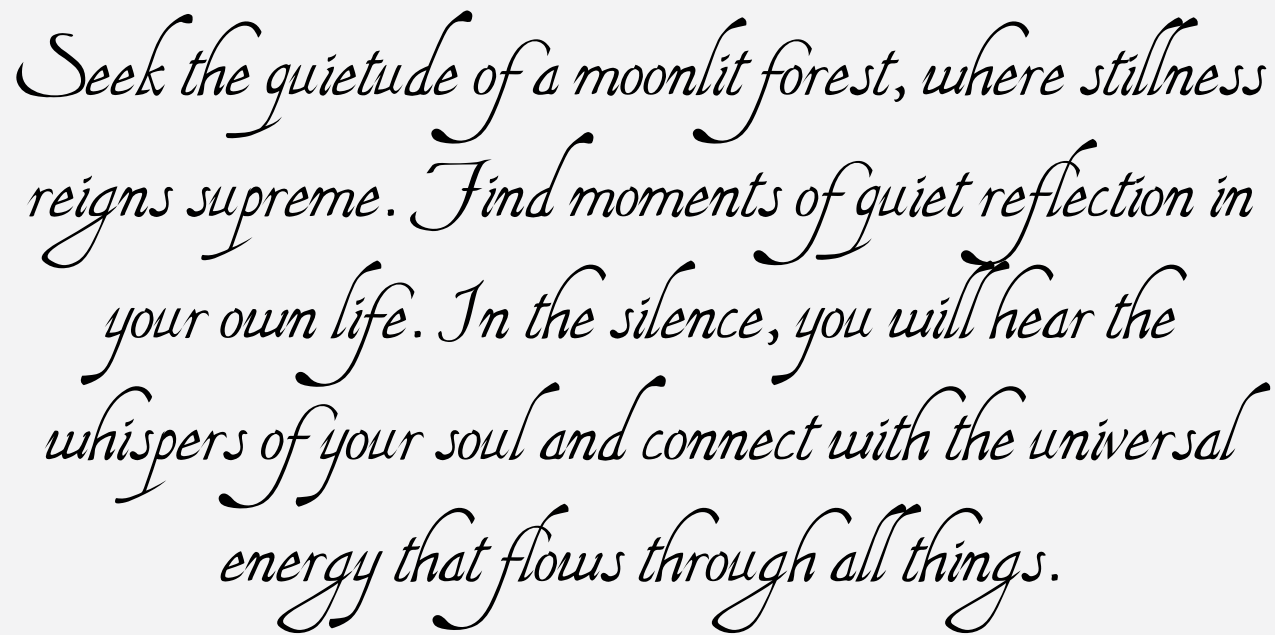 Seek the quietude of a moonlit forest, where stillness
reigns supreme. Find moments of quiet reflection in
your own life. In the silence, you will hear the
whispers of your soul and connect with the universal
energy that flows through all things.